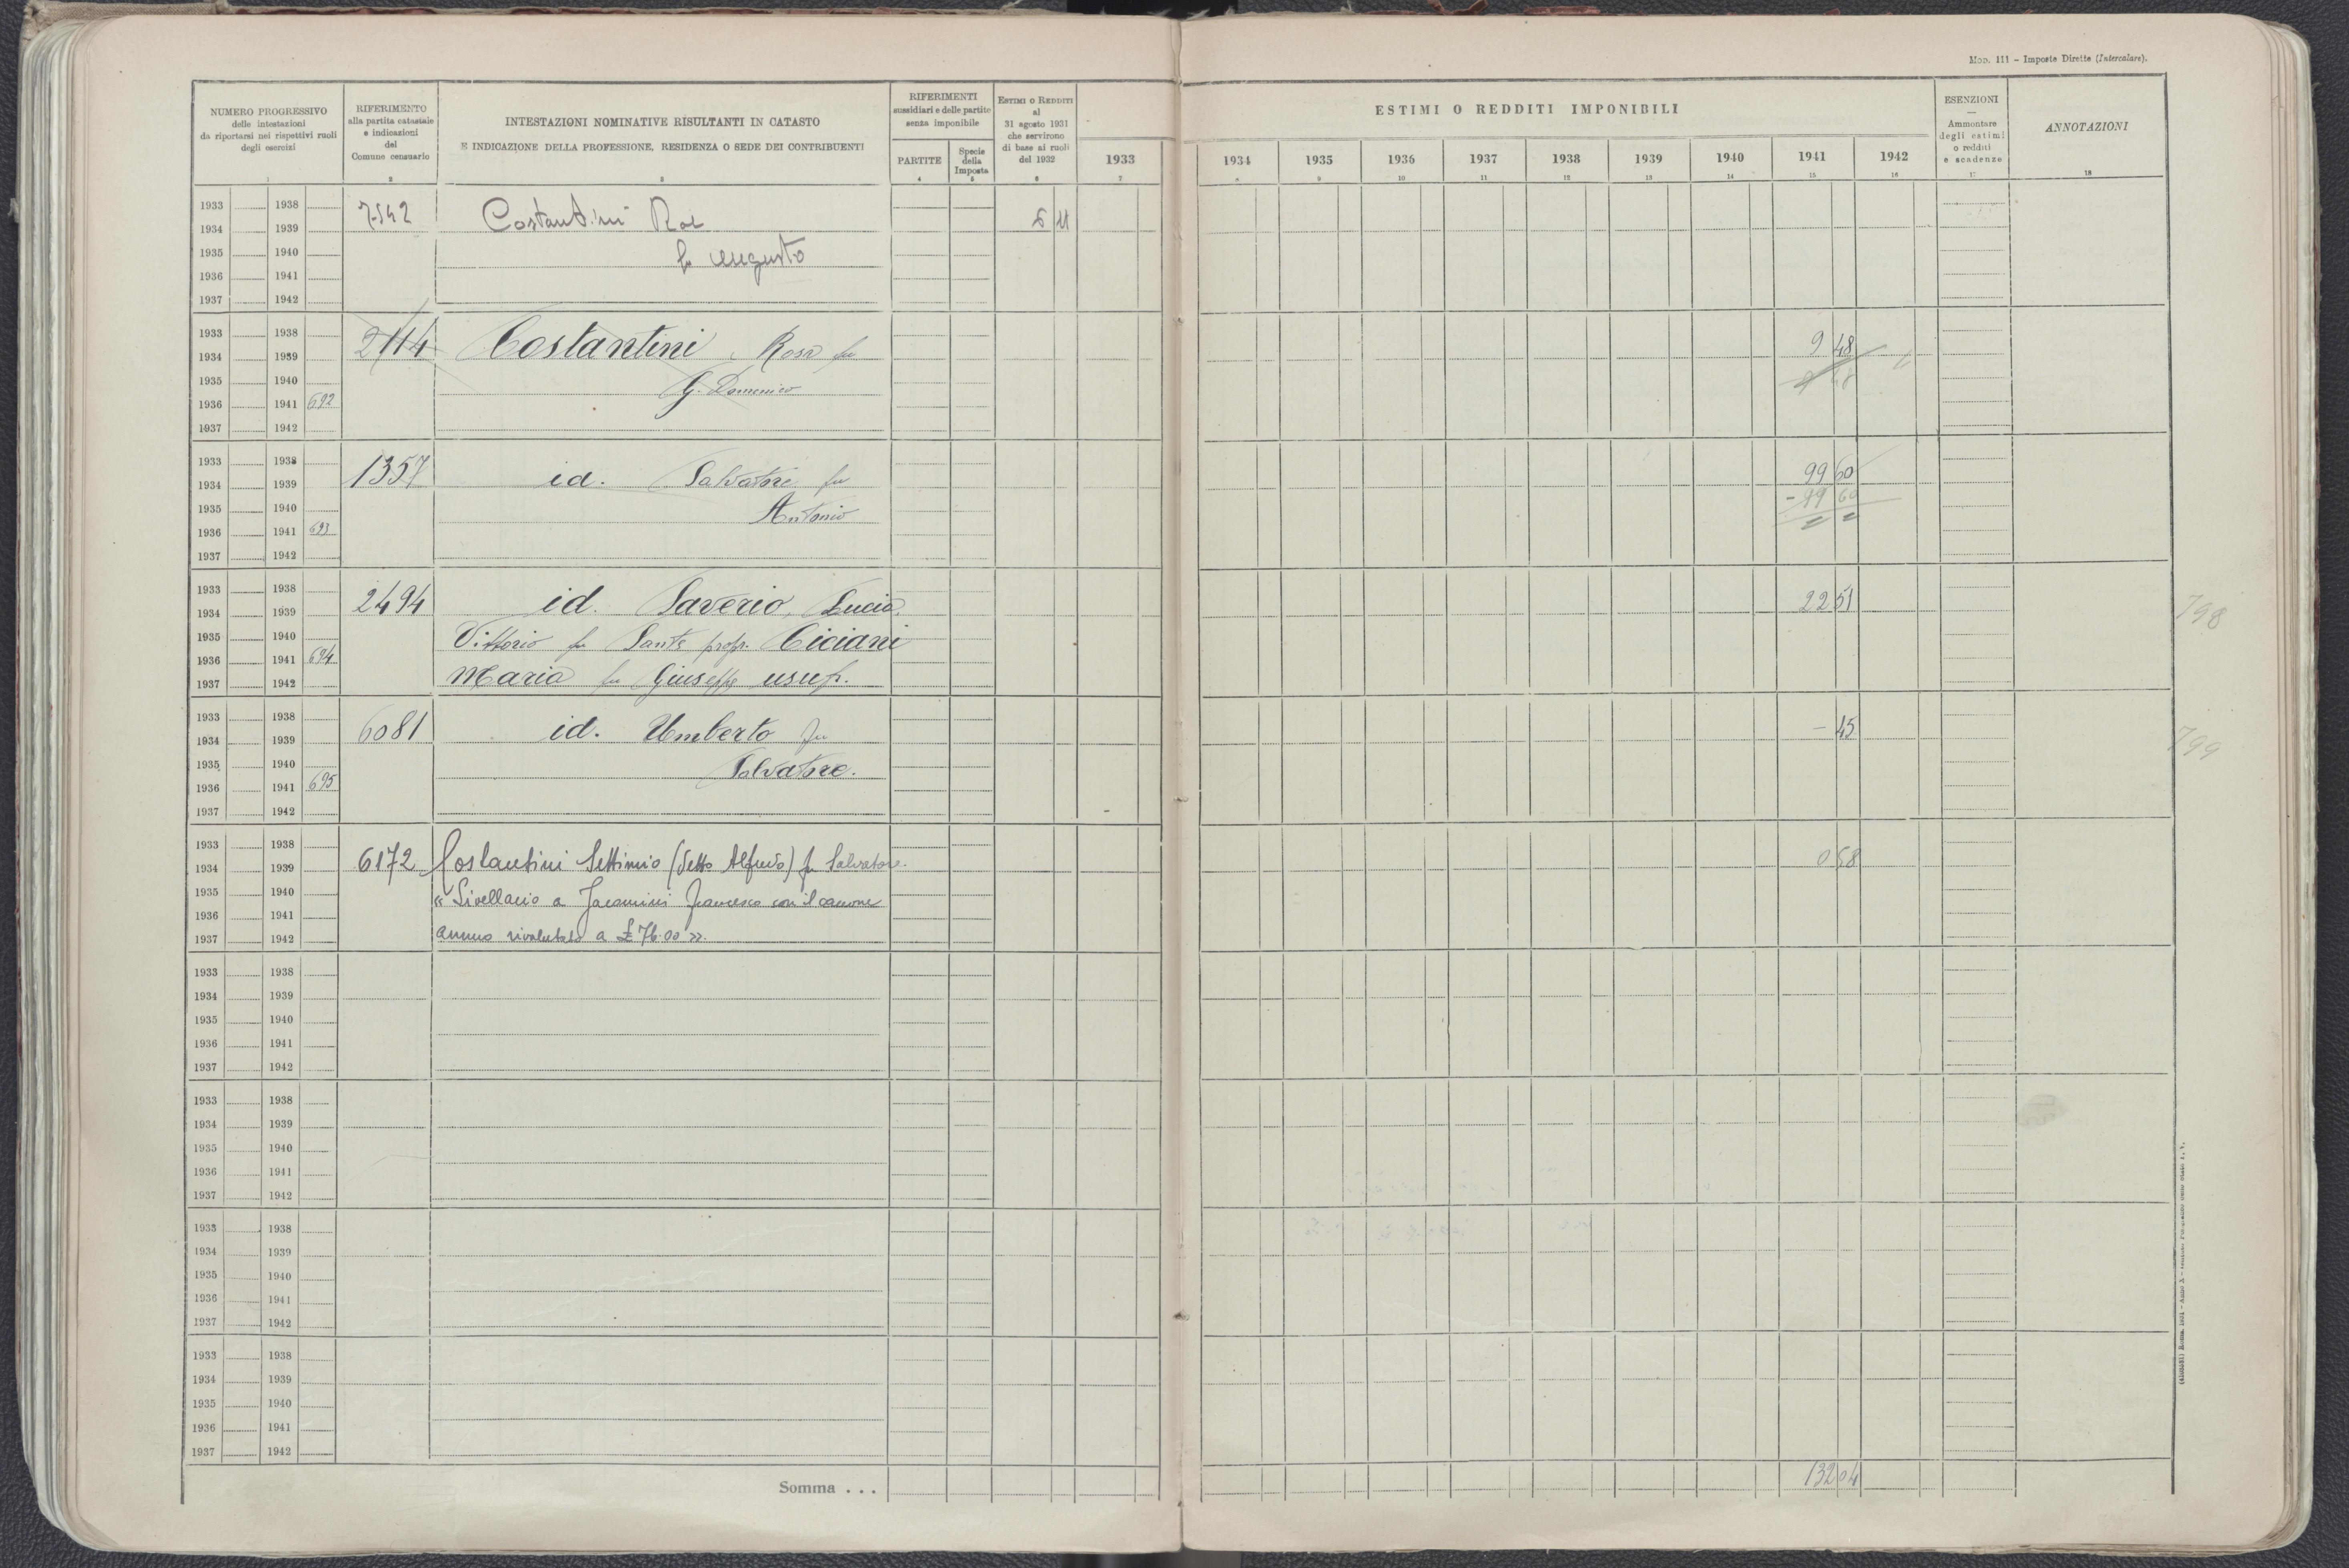 Mod. 111 - Imposte Dirette (Intercalare).
NUMERO PROGRESSIVO
delle intestazioni
da riportarsi nei rispettivi ruoli
degli esercizi
1
RIFERIMENTO
alla partita catastale
e indicazioni
del
Comune censuario
2
INTESTAZIONI NOMINATIVE RISULTANTI IN CATASTO
E INDICAZIONE DELLA PROFESSIONE, RESIDENZA O SEDE DEI CONTRIBUENTI
3
RIFERIMENTI
sussidiari e delle partite
senza imponibile
PARTITE
4
Specie
della
Imposta
5
ESTIMI O REDDITI
al
31 agosto 1931
che servirono
di base ai ruoli
del 1932
6
ESTIMI O REDDITI IMPONIBILI
1933 1934 1935 1936 1937 1938 1939 1940 1941 1942
7 8 9 10 11 12 13 14 15 16
ESENZIONI
—
Ammontare
degli estimi
o redditi
e scadenze
17
ANNOTAZIONI
18
1933 1938 7542 Costantini
1934 1939
1935 1940 fu Augusto
1936 1941
1937 1942
1933 1938 2114 Costantini Rosa fu 9 48
1934 1939
1935 1940 G. Domenico
1936 1941 692
1937 1942
1933 1938 1357 id. Salvatore fu 99 60
1934 1939 - 99 60
1935 1940 Antonio
1936 1941 693
1937 1942
1933 1938 2494 id. Saverio, Lucia, 22 51 798
1934 1939
1935 1940 Vittorio fu Sante propr. Ciciani
1936 1941 694
1937 1942 Maria fu Giuseppe usuf.
1933 1938 6081 id. Umberto fu — 45 799
1934 1939
1935 1940 Salvatore.
1936 1941 695
1937 1942
1933 1938
1934 1939 6172 Costantini Settimio (detto Alfredo) fu Salvatore. 0 58
1935 1940 « Livellario a Jacomini Francesco con il canone
1936 1941
1937 1942 annuo rivalutato a £ 76.00 ».
1933 1938
1934 1939
1935 1940
1936 1941
1937 1942
1933 1938
1934 1939
1935 1940
1936 1941
1937 1942
1933 1938
1934 1939
1935 1940
1936 1941
1937 1942
1933 1938
1934 1939
1935 1940
1936 1941
1937 1942
Somma . . . 132 04